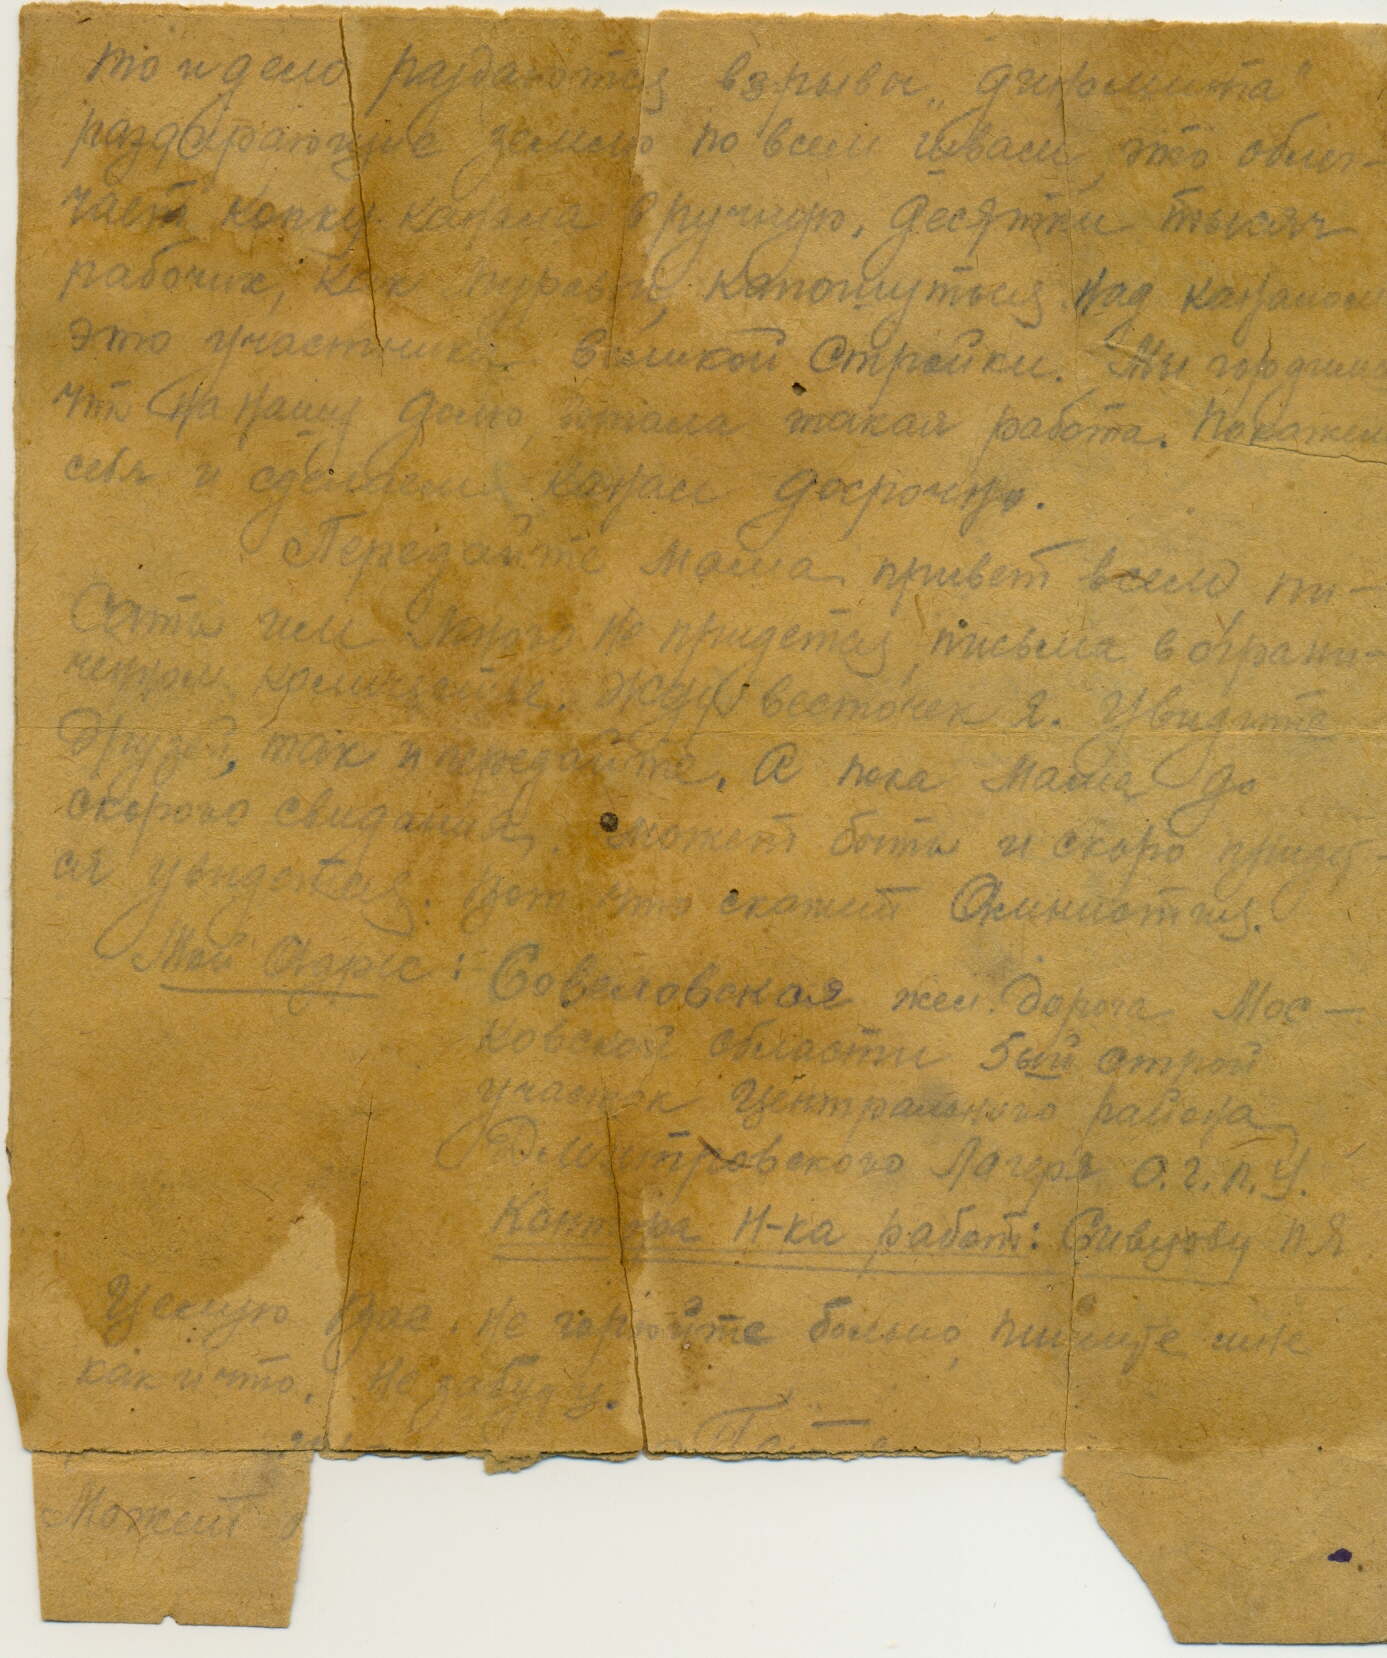 то и дело раздаются взрывы „динамита"
раздирающие землю по всем швам, это облег-
чает копку канала вручную. Десятки тысяч
рабочих, как муравьи, копошуться над каналом
это участники Великой Стройки. Мы гордимся
что на нашу долю пала такая работа. Покажем
себя и сделаем канал досрочно.
Передайте Мама привет всем пи-
сать им много не придется, письма в ограни-
ченном количестве. Жду весточек я. Увидите
друзей, так и передайте. А пока Мама до
скорого свидания. Может быть и скоро придет-
ся увидеться. Вот что скажет Амнистия.
Мой Адрес: Совеловская жел. дорога Мос-
ковской области 5ый строй
участок Центрального района
Дмитровского Лагеря О.Г.П.У.
Контора Н-ка работ: Сивцову П Я
Целую Вас. Не горюйте больно, пишите мне
как и что. Не забуду.
Может